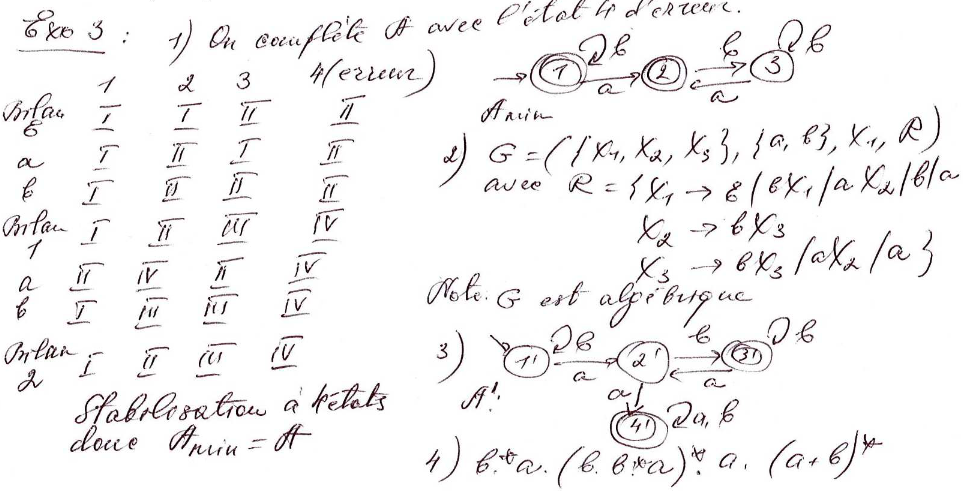 Exo 3 : 1) On complète A avec l'état 4 d'erreur.
1 2 3 4 (erreur)
Bilan 0 I I II II
a I II I II
b I II II II
Bilan 1 I II III IV
a II IV II IV
b I III III IV
Bilan 2 I II III IV
Stabilisation à 4 états
donc Amin = A
1 b a 2 b a 3 b
Amin
2) G = ({X1, X2, X3}, {a, b}, X1, R)
avec R = {X1 → ε / bX1 / aX2 / b / a
X2 → bX3
X3 → bX3 / aX2 / a }
Note: G est algébrique
3) 1' b a 2' b a 3' b
A':
a 4' a, b
4) b*a. (b. b*a)*. a. (a+b)*